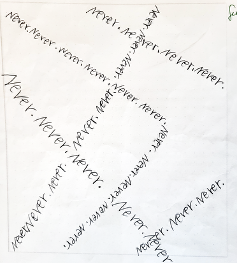 Never. Never. Never. Never.
Never. Never. Never.
Never. Never. Never. Never. Never.
Never. Never. Never.
Never. Never.
Never. Never.
Never. Never. Never. Never.
Never. Never.
Never. Never. Never.